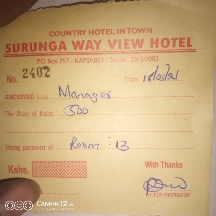 COUNTRY HOTEL IN TOWN
SURUNGA WAY VIEW HOTEL
P.O. Box 757 - KAPSABET
No. 2402 Date
RECEIVED from Manager
The Sum of Kshs. 500
Being payment of Room: 13
Kshs. With Thanks
FOR PROPRIETOR
CAMON 12